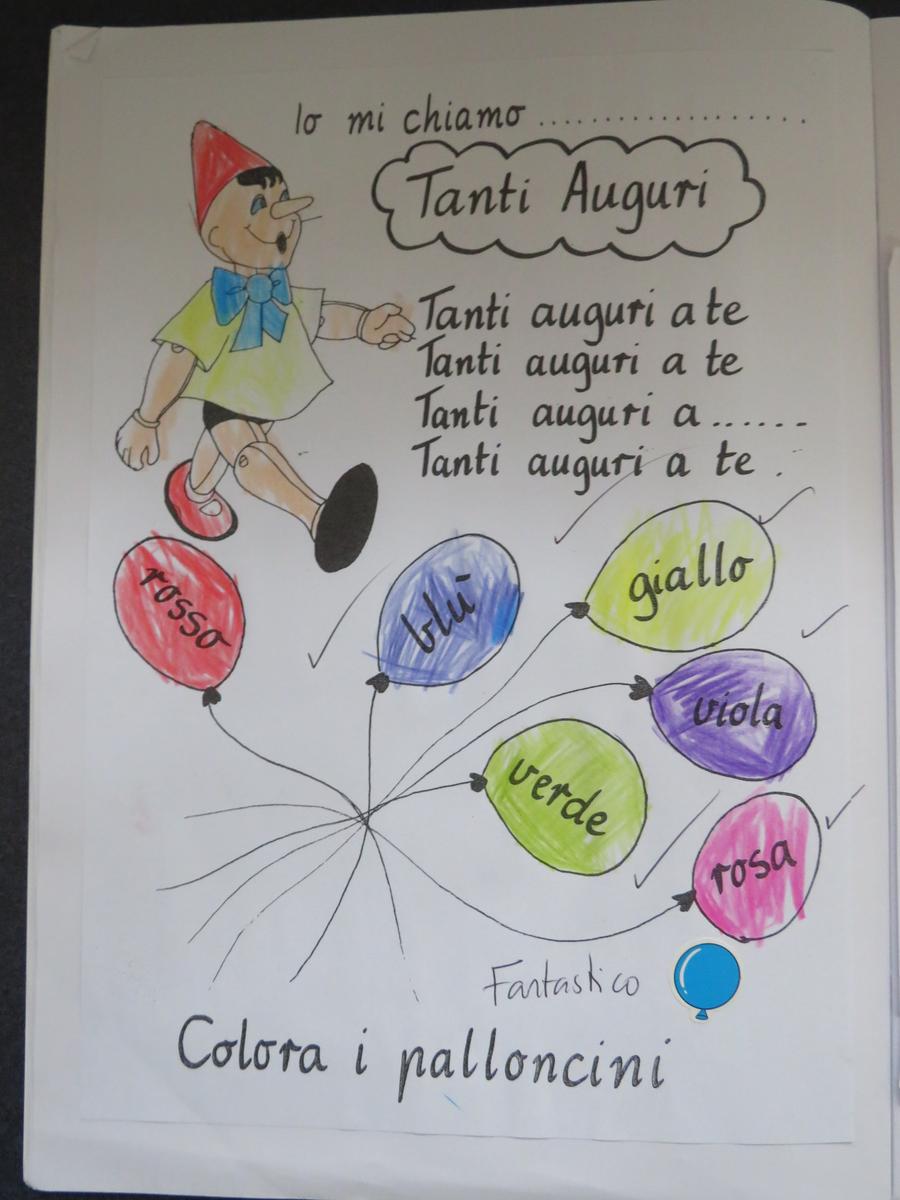 Io mi chiamo ..................
Tanti Auguri
Tanti auguri a te
Tanti auguri a te
Tanti auguri a ......
Tanti auguri a te .
rosso
blū
giallo
viola
verde
rosa
Fantastico
Colora i palloncini